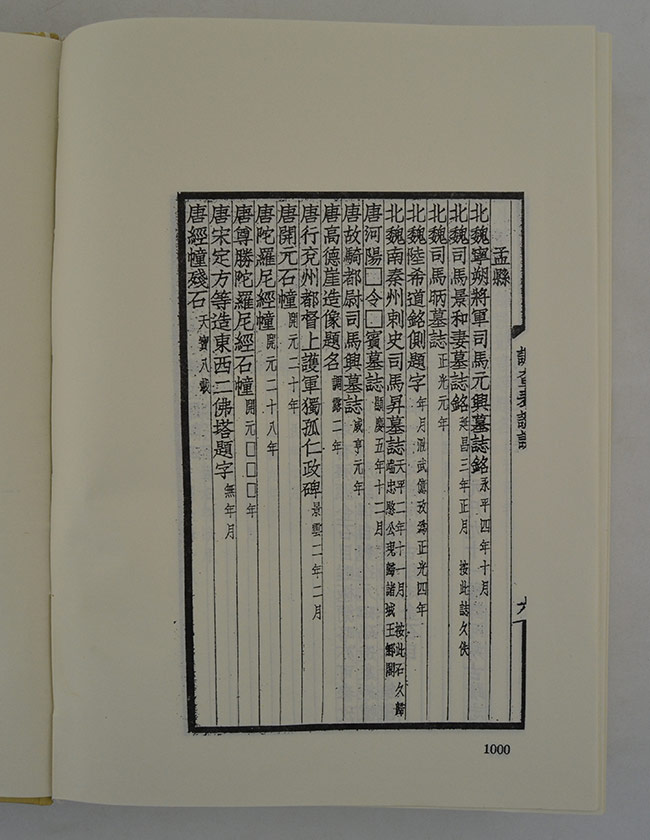 孟縣
北魏寧朔將軍司馬元興墓誌銘 永平四年十月
北魏司馬景和妻墓誌銘 延昌三年正月 按此誌久佚
北魏司馬昞墓誌 正光元年
北魏陸希道銘側題字 年月泐武億攷為正光四年
北魏南秦州刺史司馬昇墓誌 天平二年十一月 按此石久歸端忠愍公現歸諸城王
唐河陽□令□賓墓誌 顯慶五年十二月
唐故騎都尉司馬興墓誌 咸亨元年
唐高德崖造像題名 調露二年
唐行兗州都督上護軍獨孤仁政碑 景雲二年二月
唐開元石幢 開元二十年
唐陀羅尼經幢 開元二十八年
唐尊勝陀羅尼經石幢 開元□□□年
唐宋定方等造東西二佛塔題字 無年月
唐經幢殘石 天寶八載
1000